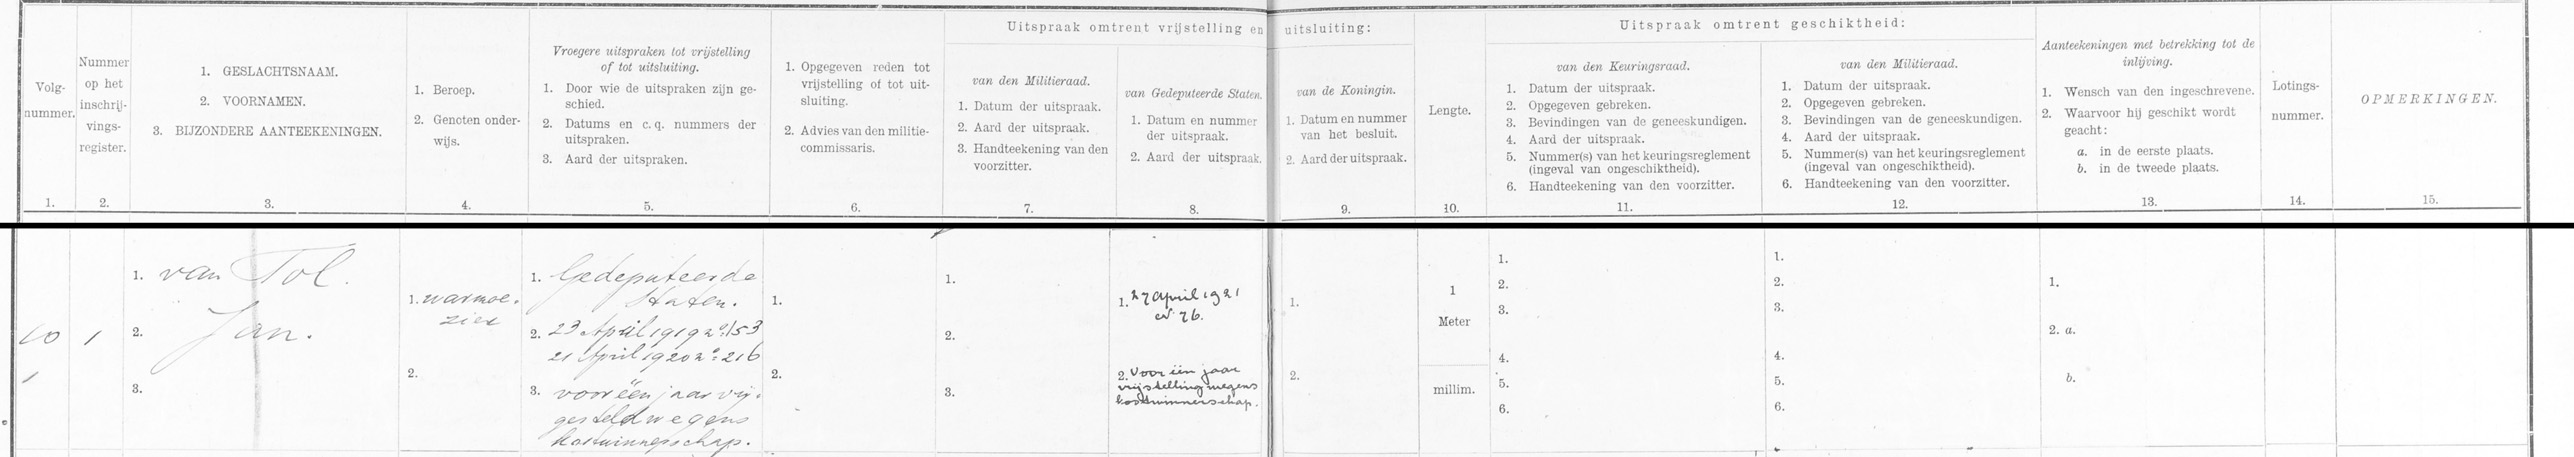 Uitspraak omtrent vrijstelling en uitsluiting:
Uitspraak omtrent geschiktheid:
Volg-
nummer.
1.
Nummer
op het
inschrij-
vings-
register.
2.
1. GESLACHTSNAAM.
2. VOORNAMEN.
3. BIJZONDERE AANTEEKENINGEN.
3.
1. Beroep.
2. Genoten onder-
wijs.
4.
Vroegere uitspraken tot vrijstelling
of tot uitsluiting.
1. Door wie de uitspraken zijn ge-
schied.
2. Datums en c.q. nummers der
uitspraken.
3. Aard der uitspraken.
5.
1. Opgegeven reden tot
vrijstelling of tot uit-
sluiting.
2. Advies van den militie-
commissaris.
6.
van den Militieraad.
1. Datum der uitspraak.
2. Aard der uitspraak.
3. Handteekening van den
voorzitter.
7.
van Gedeputeerde Staten.
1. Datum en nummer
der uitspraak.
2. Aard der uitspraak.
8.
van de Koningin.
1. Datum en nummer
van het besluit.
2. Aard der uitspraak.
9.
Lengte.
10.
van den Keuringsraad.
1. Datum der uitspraak.
2. Opgegeven gebreken.
3. Bevindingen van de geneeskundigen.
4. Aard der uitspraak.
5. Nummer(s) van het keuringsreglement
(ingeval van ongeschiktheid).
6. Handteekening van den voorzitter.
11.
van den Militieraad.
1. Datum der uitspraak.
2. Opgegeven gebreken.
3. Bevindingen van de geneeskundigen.
4. Aard der uitspraak.
5. Nummer(s) van het keuringsreglement
(ingeval van ongeschiktheid).
6. Handteekening van den voorzitter.
12.
Aanteekeningen met betrekking tot de
inlijving.
1. Wensch van den ingeschrevene.
2. Waarvoor hij geschikt wordt
geacht:
a. in de eerste plaats.
b. in de tweede plaats.
13.
Lotings-
nummer.
14.
OPMERKINGEN.
15.
10
1
1
1. van Tol.
2. Jan.
3.
1. warmoe-
zier
2.
1. Gedeputeerde
Staten.
2. 23 April 1919 no 153
21 April 1920 no 216
3. voor één jaar vrij-
gesteld wegens
kostwinnerschap.
1.
2.
1.
2.
3.
1. 27 april 1921
no 76.
2. Voor één jaar
vrijstelling wegens
kostwinnerschap.
1.
2.
1
Meter
millim.
1.
2.
3.
4.
5.
6.
1.
2.
3.
4.
5.
6.
1.
2. a.
b.